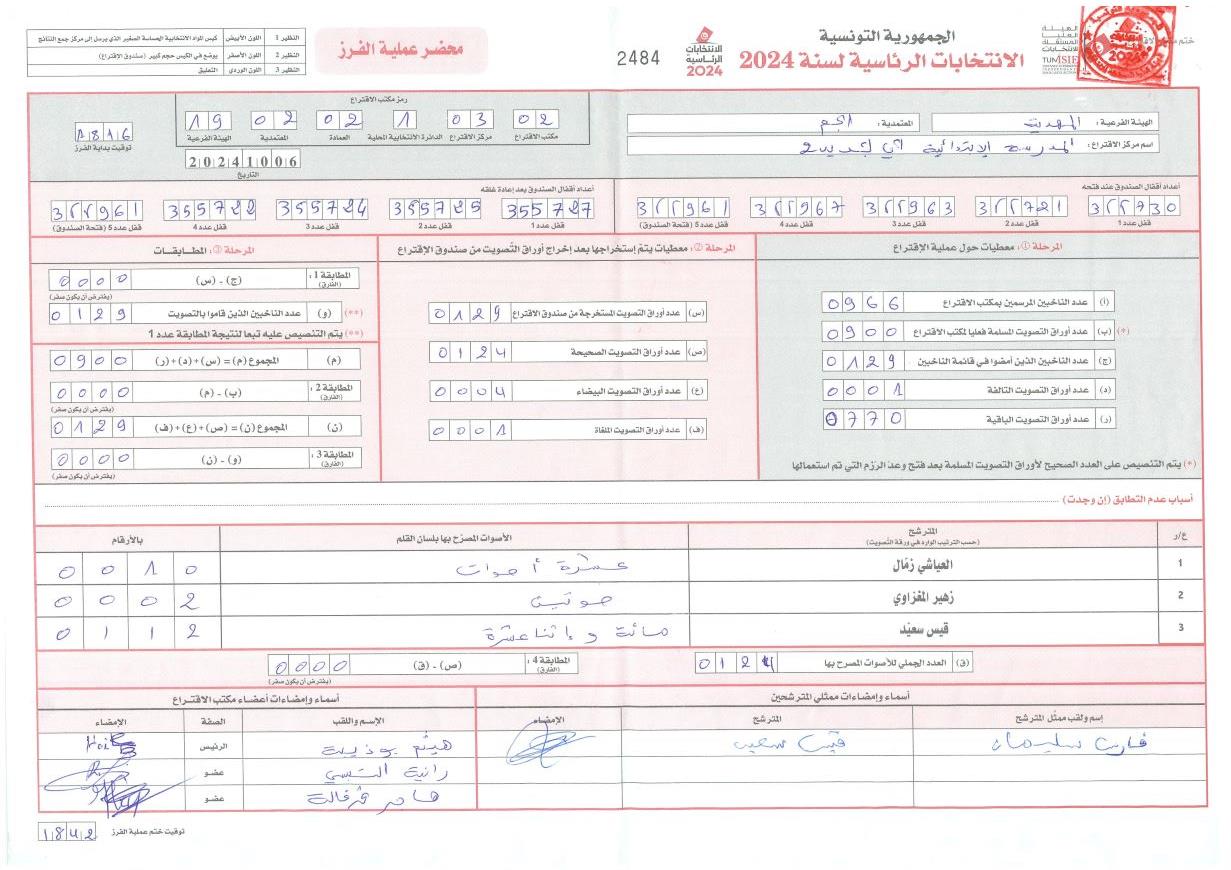 الجمهورية التونسية
الانتخابات الرئاسية لسنة 2024
الانتخابات الرئاسية 2024
2484
محضر عملية الفرز
النظير 1 اللون الأبيض كيس المواد الانتخابية الحساسة الصغير الذي يرسل إلى مركز جمع النتائج
النظير 2 اللون الأصفر يوضع في الكيس حجم كبير (صندوق الاقتراع)
النظير 3 اللون الوردي التعليق
الهيئة الفرعية : المهدية
المعتمدية : الجم
اسم مركز الاقتراع : المدرسة الإبتدائية
رمز مكتب الاقتراع
02 03 1 02 02 19
مكتب الاقتراع مركز الاقتراع الدائرة الانتخابية المحلية العمادة المعتمدية الهيئة الفرعية
1816
توقيت بداية الفرز
20241006
التاريخ
أعداد أقفال الصندوق عند فتحه
355730 355721 355963 355967 355961
قفل عدد 1 قفل عدد 2 قفل عدد 3 قفل عدد 4 قفل عدد 5 (فتحة الصندوق)
أعداد أقفال الصندوق بعد إعادة غلقه
355727 355725 355724 355722 355961
قفل عدد 1 قفل عدد 2 قفل عدد 3 قفل عدد 4 قفل عدد 5 (فتحة الصندوق)
المرحلة ①: معطيات حول عملية الإقتراع
(أ) عدد الناخبين المرسمين بمكتب الاقتراع 0966
(*) (ب) عدد أوراق التصويت المسلمة فعليا لمكتب الاقتراع 0900
(ج) عدد الناخبين الذين أمضوا في قائمة الناخبين 0129
(د) عدد أوراق التصويت التالفة 0001
(ر) عدد أوراق التصويت الباقية 0770
(*) يتم التنصيص على العدد الصحيح لأوراق التصويت المسلمة بعد فتح وعد الرزم التي تم استعمالها
المرحلة ②: معطيات يتم إستخراجها بعد إخراج أوراق التصويت من صندوق الإقتراع
(س) عدد أوراق التصويت المستخرجة من صندوق الاقتراع 0129
(ص) عدد أوراق التصويت الصحيحة 0124
(ع) عدد أوراق التصويت البيضاء 0004
(ف) عدد أوراق التصويت الملغاة 0001
المرحلة ③: المطابقات
المطابقة 1 : (الفارق) (ج) - (س) 0000
(يفترض أن يكون صفر)
(**) (و) عدد الناخبين الذين قاموا بالتصويت 0129
(**) يتم التنصيص عليه تبعا لنتيجة المطابقة عدد 1
(م) المجموع (م) = (س)+(د)+(ر) 0900
المطابقة 2 : (الفارق) (ب) - (م) 0000
(يفترض أن يكون صفر)
(ن) المجموع (ن) = (ص)+(ع)+(ف) 0129
المطابقة 3 : (الفارق) (و) - (ن) 0000
(يفترض أن يكون صفر)
أسباب عدم التطابق (إن وجدت)
ع/ر المترشح (حسب الترتيب الوارد في ورقة التصويت) الأصوات المصرّح بها بلسان القلم بالأرقام
1 العياشي زمّال عشرة أصوات 0010
2 زهير المغزاوي صوتين 0002
3 قيس سعيّد مائة و إثنا عشرة 0112
(ق) العدد الجملي للأصوات المصرح بها 0124
المطابقة 4 : (الفارق) (ص) - (ق) 0000
(يفترض أن يكون صفر)
أسماء وإمضاءات ممثلي المترشحين
إسم ولقب ممثل المترشح المترشح الإمضاء
سليمان قيس سعيد
أسماء وإمضاءات أعضاء مكتب الاقتراع
الإسم واللقب الصفة الإمضاء
هيثم بوذينة الرئيس
رانية عضو
هاجر عضو
توقيت ختم عملية الفرز 1842